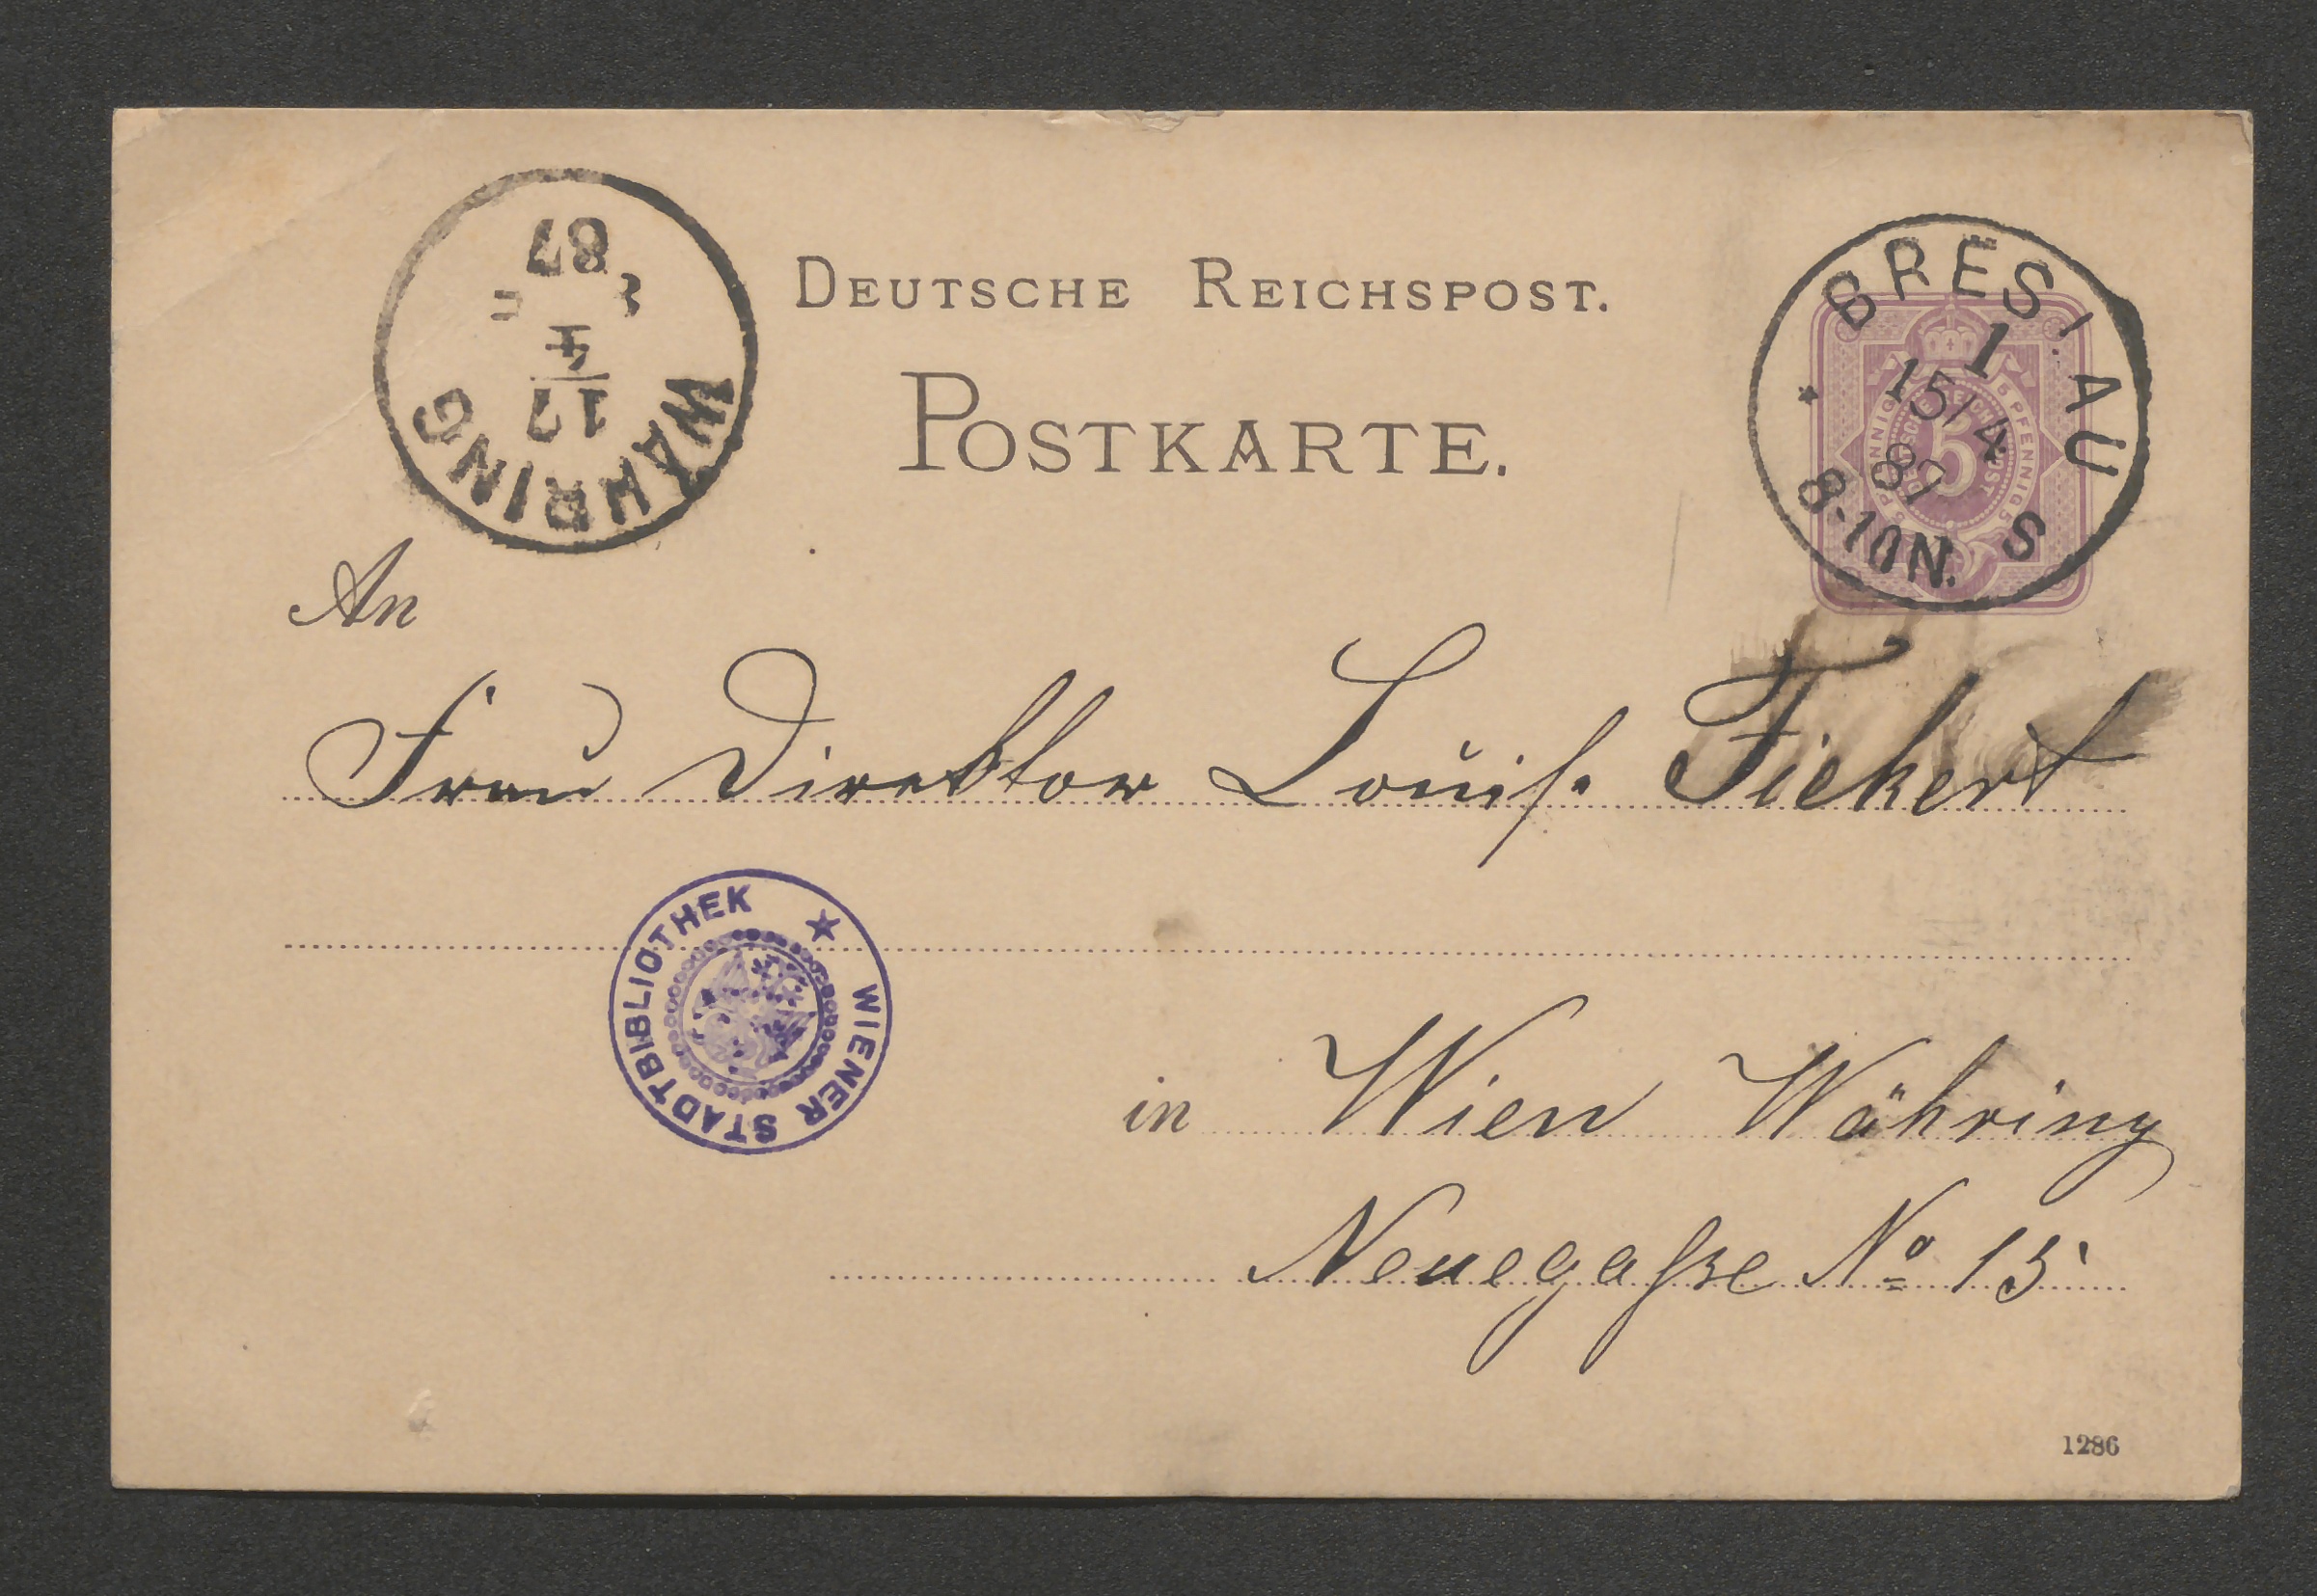 DEUTSCHE REICHSPOST.
POSTKARTE.
WÄHRING
17
4
87
BRESLAU
1
15/4
87
8-10N.
S
5 PFENNIG 5 PFENNIG
DEUTSCHE REICHSPOST
5
An
Frau Direktor Louise Fickert
WIENER STADTBIBLIOTHEK
in Wien Währing
Neuegasse No 15
1286